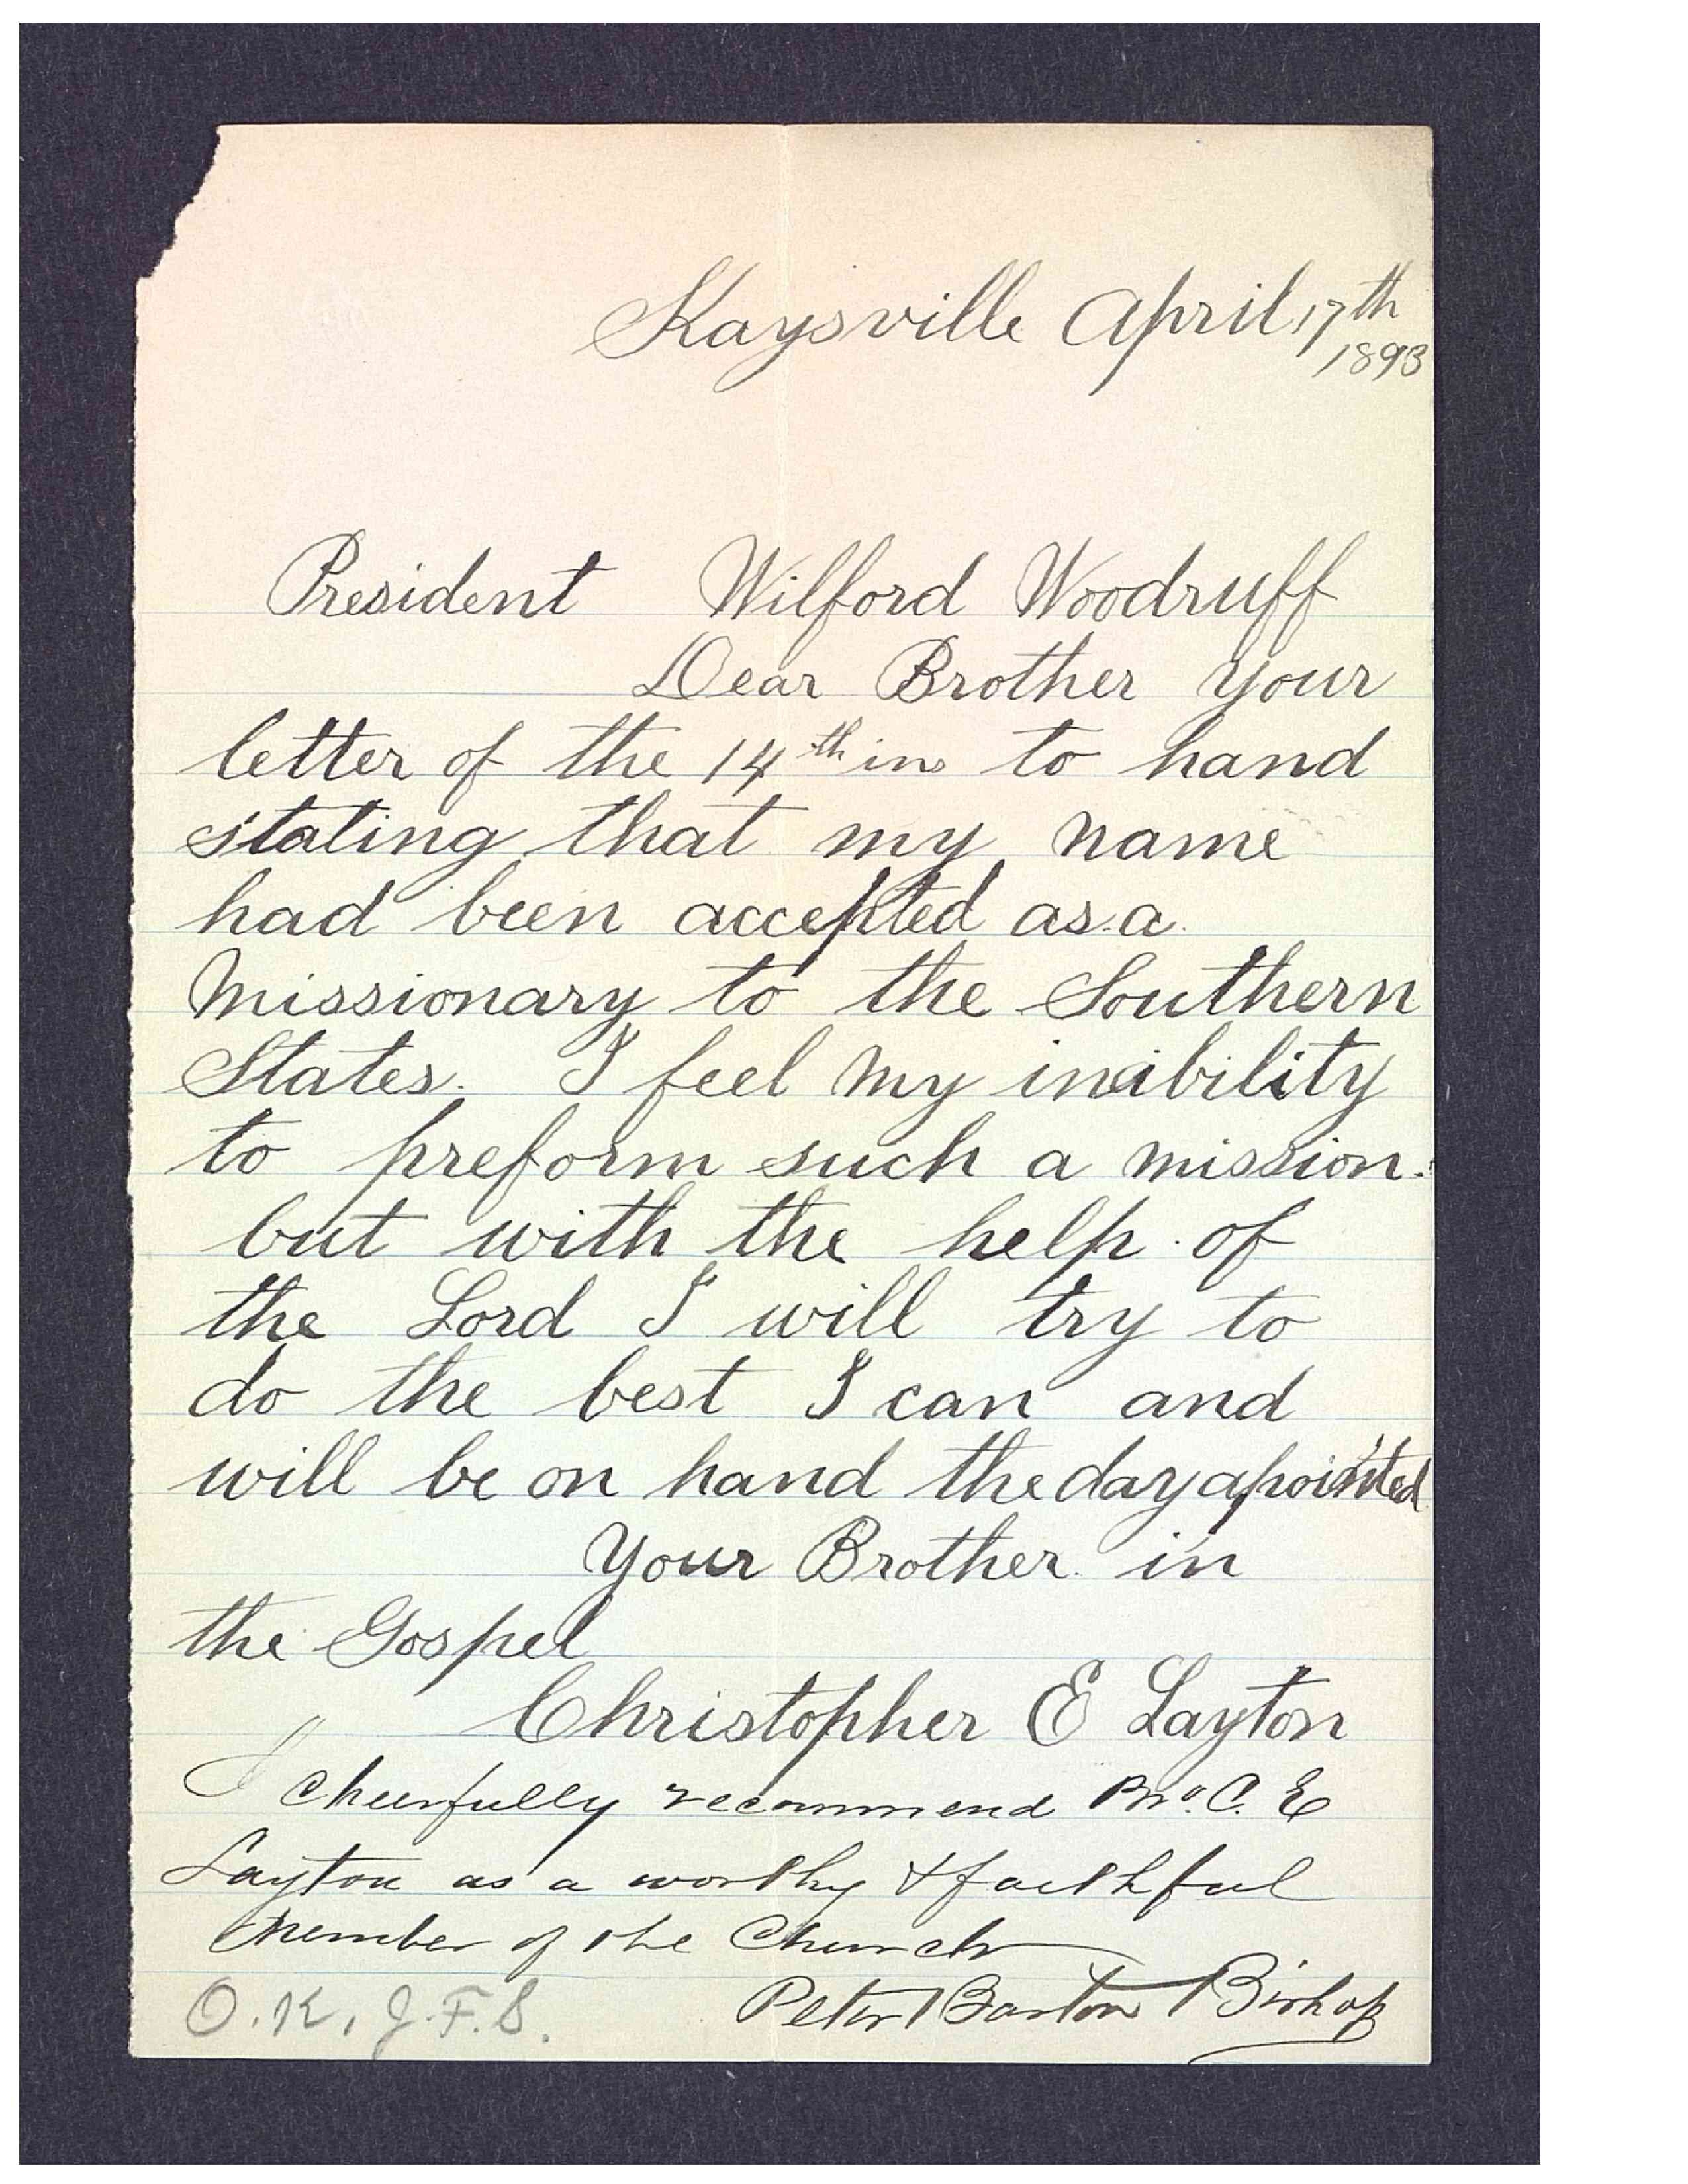 Kaysville April 17th
1893
President Wilford Woodruff
Dear Brother your
letter of the 14th ins to hand
stating that my name
had been accepted as a
Missionary to the Southern
States. I feel my inability
to preform such a mission.
but with the help of
the Lord I will try to
do the best I can and
will be on hand the day apointed
Your Brother in
the Gospel
Christopher E Layton
I cheerfully recommend Bro. C. E
Layton as a worthy & faithful
member of the Church
Peter Barton Bishop
O.K. J.F.S.